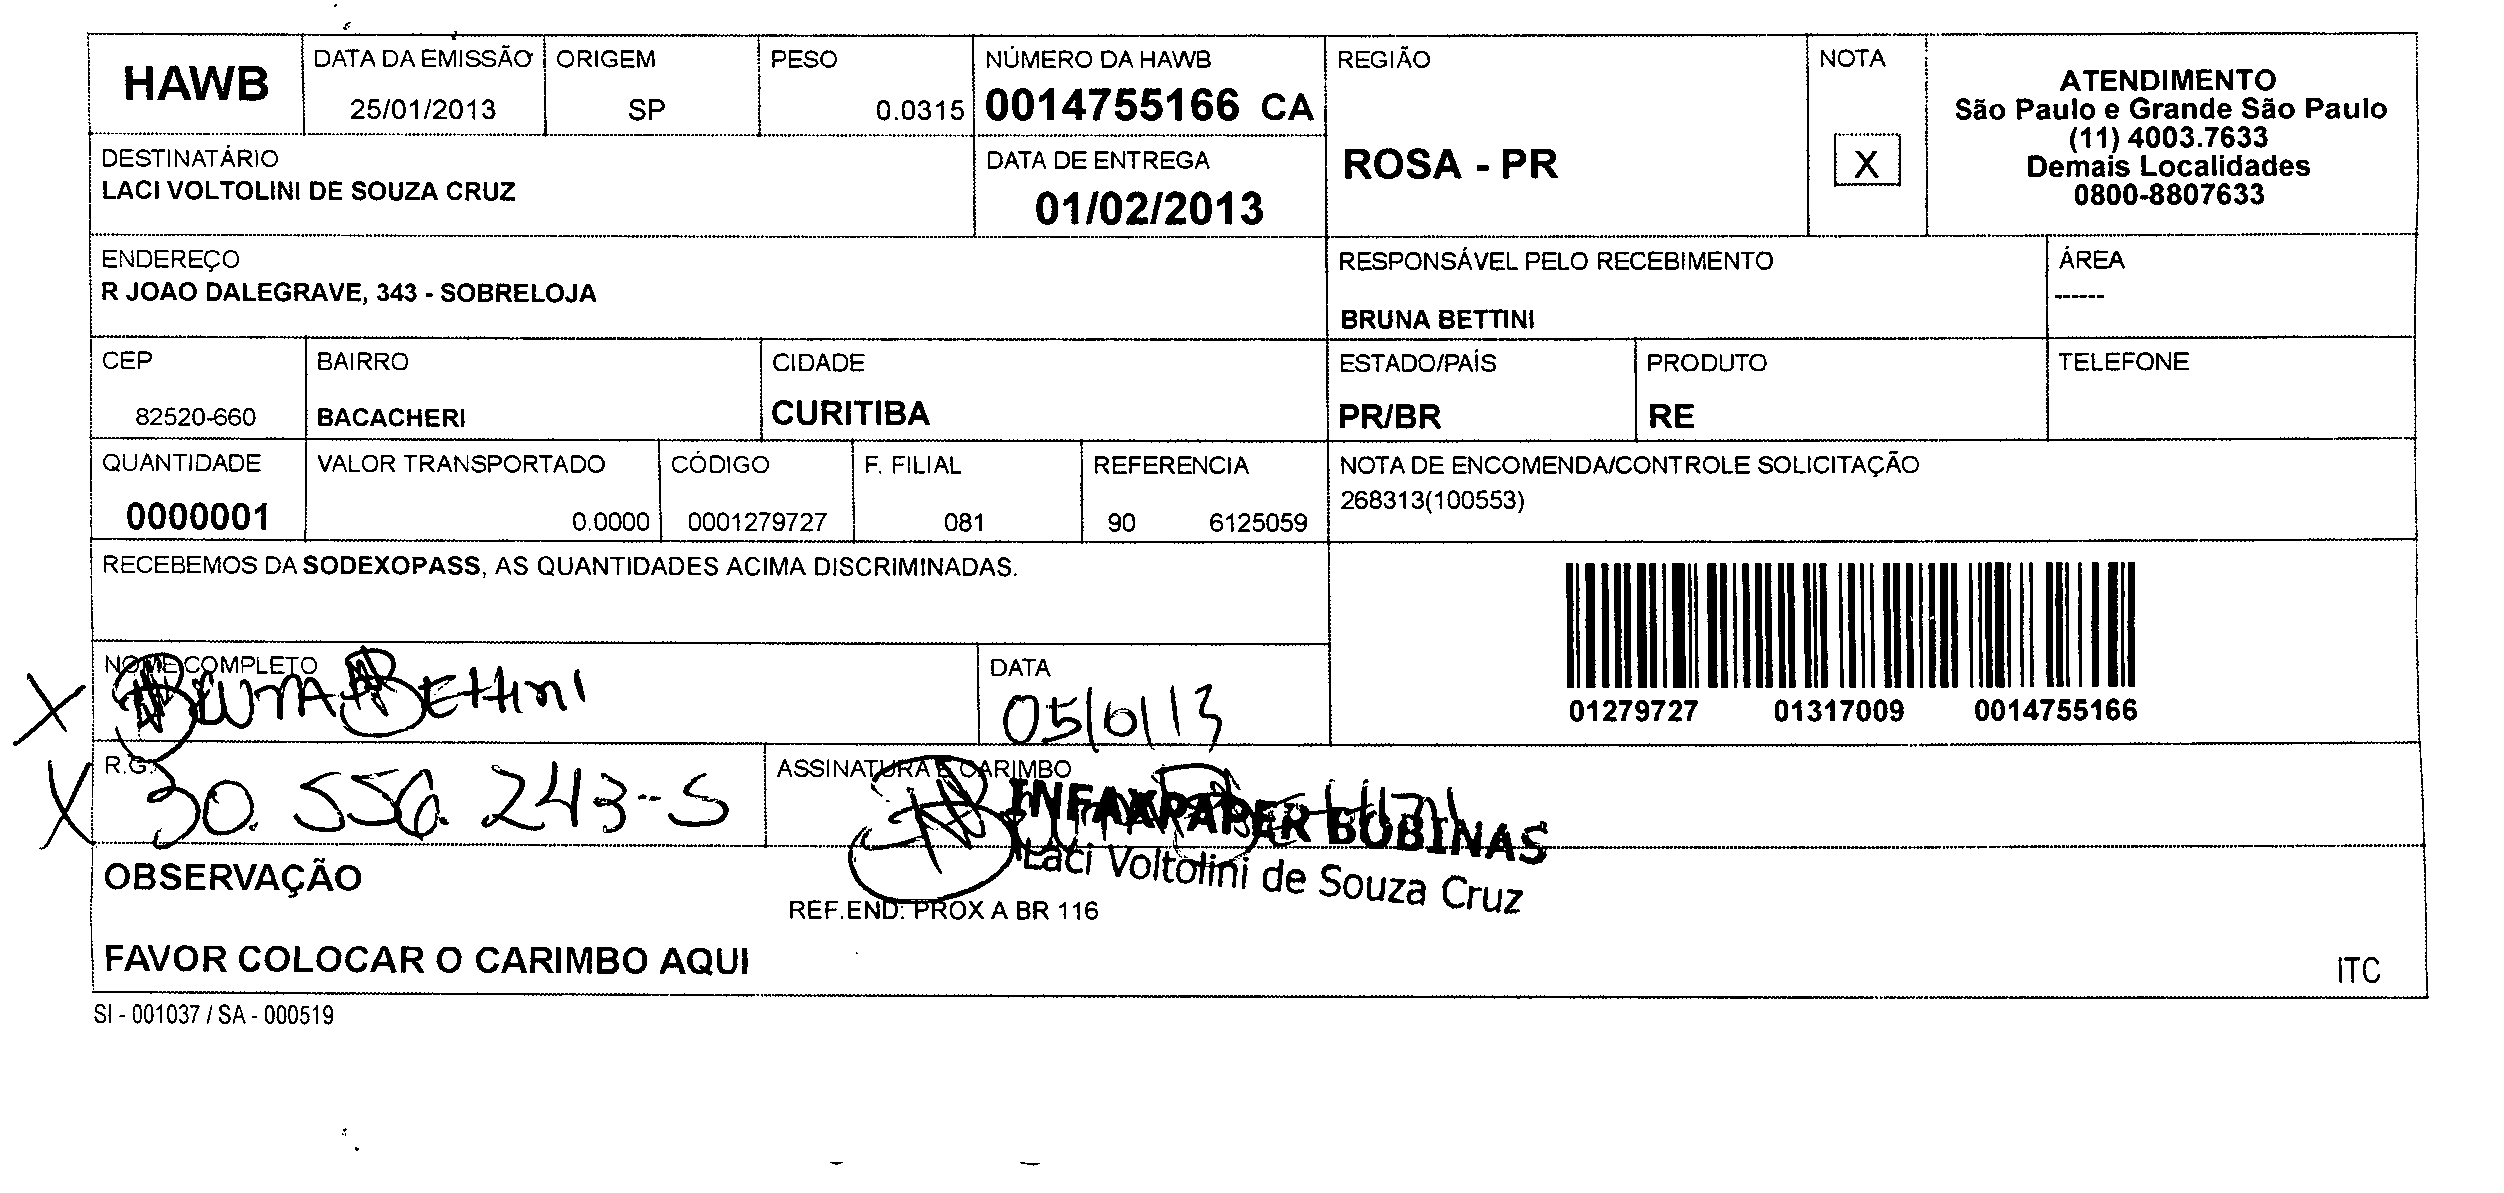 HAWB
DATA DA EMISSÃO
25/01/2013
ORIGEM
SP
PESO
0.0315
NÚMERO DA HAWB
0014755166 CA
REGIÃO
ROSA - PR
NOTA
X
ATENDIMENTO
São Paulo e Grande São Paulo
(11) 4003.7633
Demais Localidades
0800-8807633
DESTINATÁRIO
LACI VOLTOLINI DE SOUZA CRUZ
DATA DE ENTREGA
01/02/2013
ENDEREÇO
R JOAO DALEGRAVE, 343 - SOBRELOJA
RESPONSÁVEL PELO RECEBIMENTO
BRUNA BETTINI
ÁREA
------
CEP
82520-660
BAIRRO
BACACHERI
CIDADE
CURITIBA
ESTADO/PAÍS
PR/BR
PRODUTO
RE
TELEFONE
QUANTIDADE
0000001
VALOR TRANSPORTADO
0.0000
CÓDIGO
0001279727
F. FILIAL
081
REFERENCIA
90 6125059
NOTA DE ENCOMENDA/CONTROLE SOLICITAÇÃO
268313(100553)
RECEBEMOS DA SODEXOPASS, AS QUANTIDADES ACIMA DISCRIMINADAS.
01279727 01317009 0014755166
NOME COMPLETO
X Bruna Bettini
DATA
R.G.:
X 30.556.243-5
ASSINATURA E CARIMBO
INFAXPAPER BOBINAS
Laci Voltolini de Souza Cruz
OBSERVAÇÃO
REF.END: PROX A BR 116
FAVOR COLOCAR O CARIMBO AQUI
ITC
SI - 001037 / SA - 000519